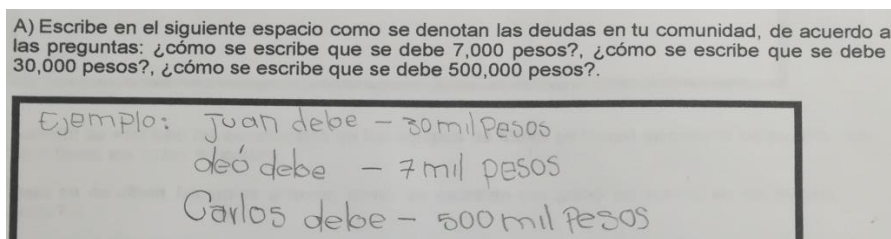 A) Escribe en el siguiente espacio como se denotan las deudas en tu comunidad, de acuerdo a
las preguntas: ¿cómo se escribe que se debe 7,000 pesos?, ¿cómo se escribe que se debe
30,000 pesos?, ¿cómo se escribe que se debe 500,000 pesos?.
Ejemplo: Juan debe - 30 mil Pesos
deó debe - 7 mil pesos
Carlos debe - 500 mil Pesos